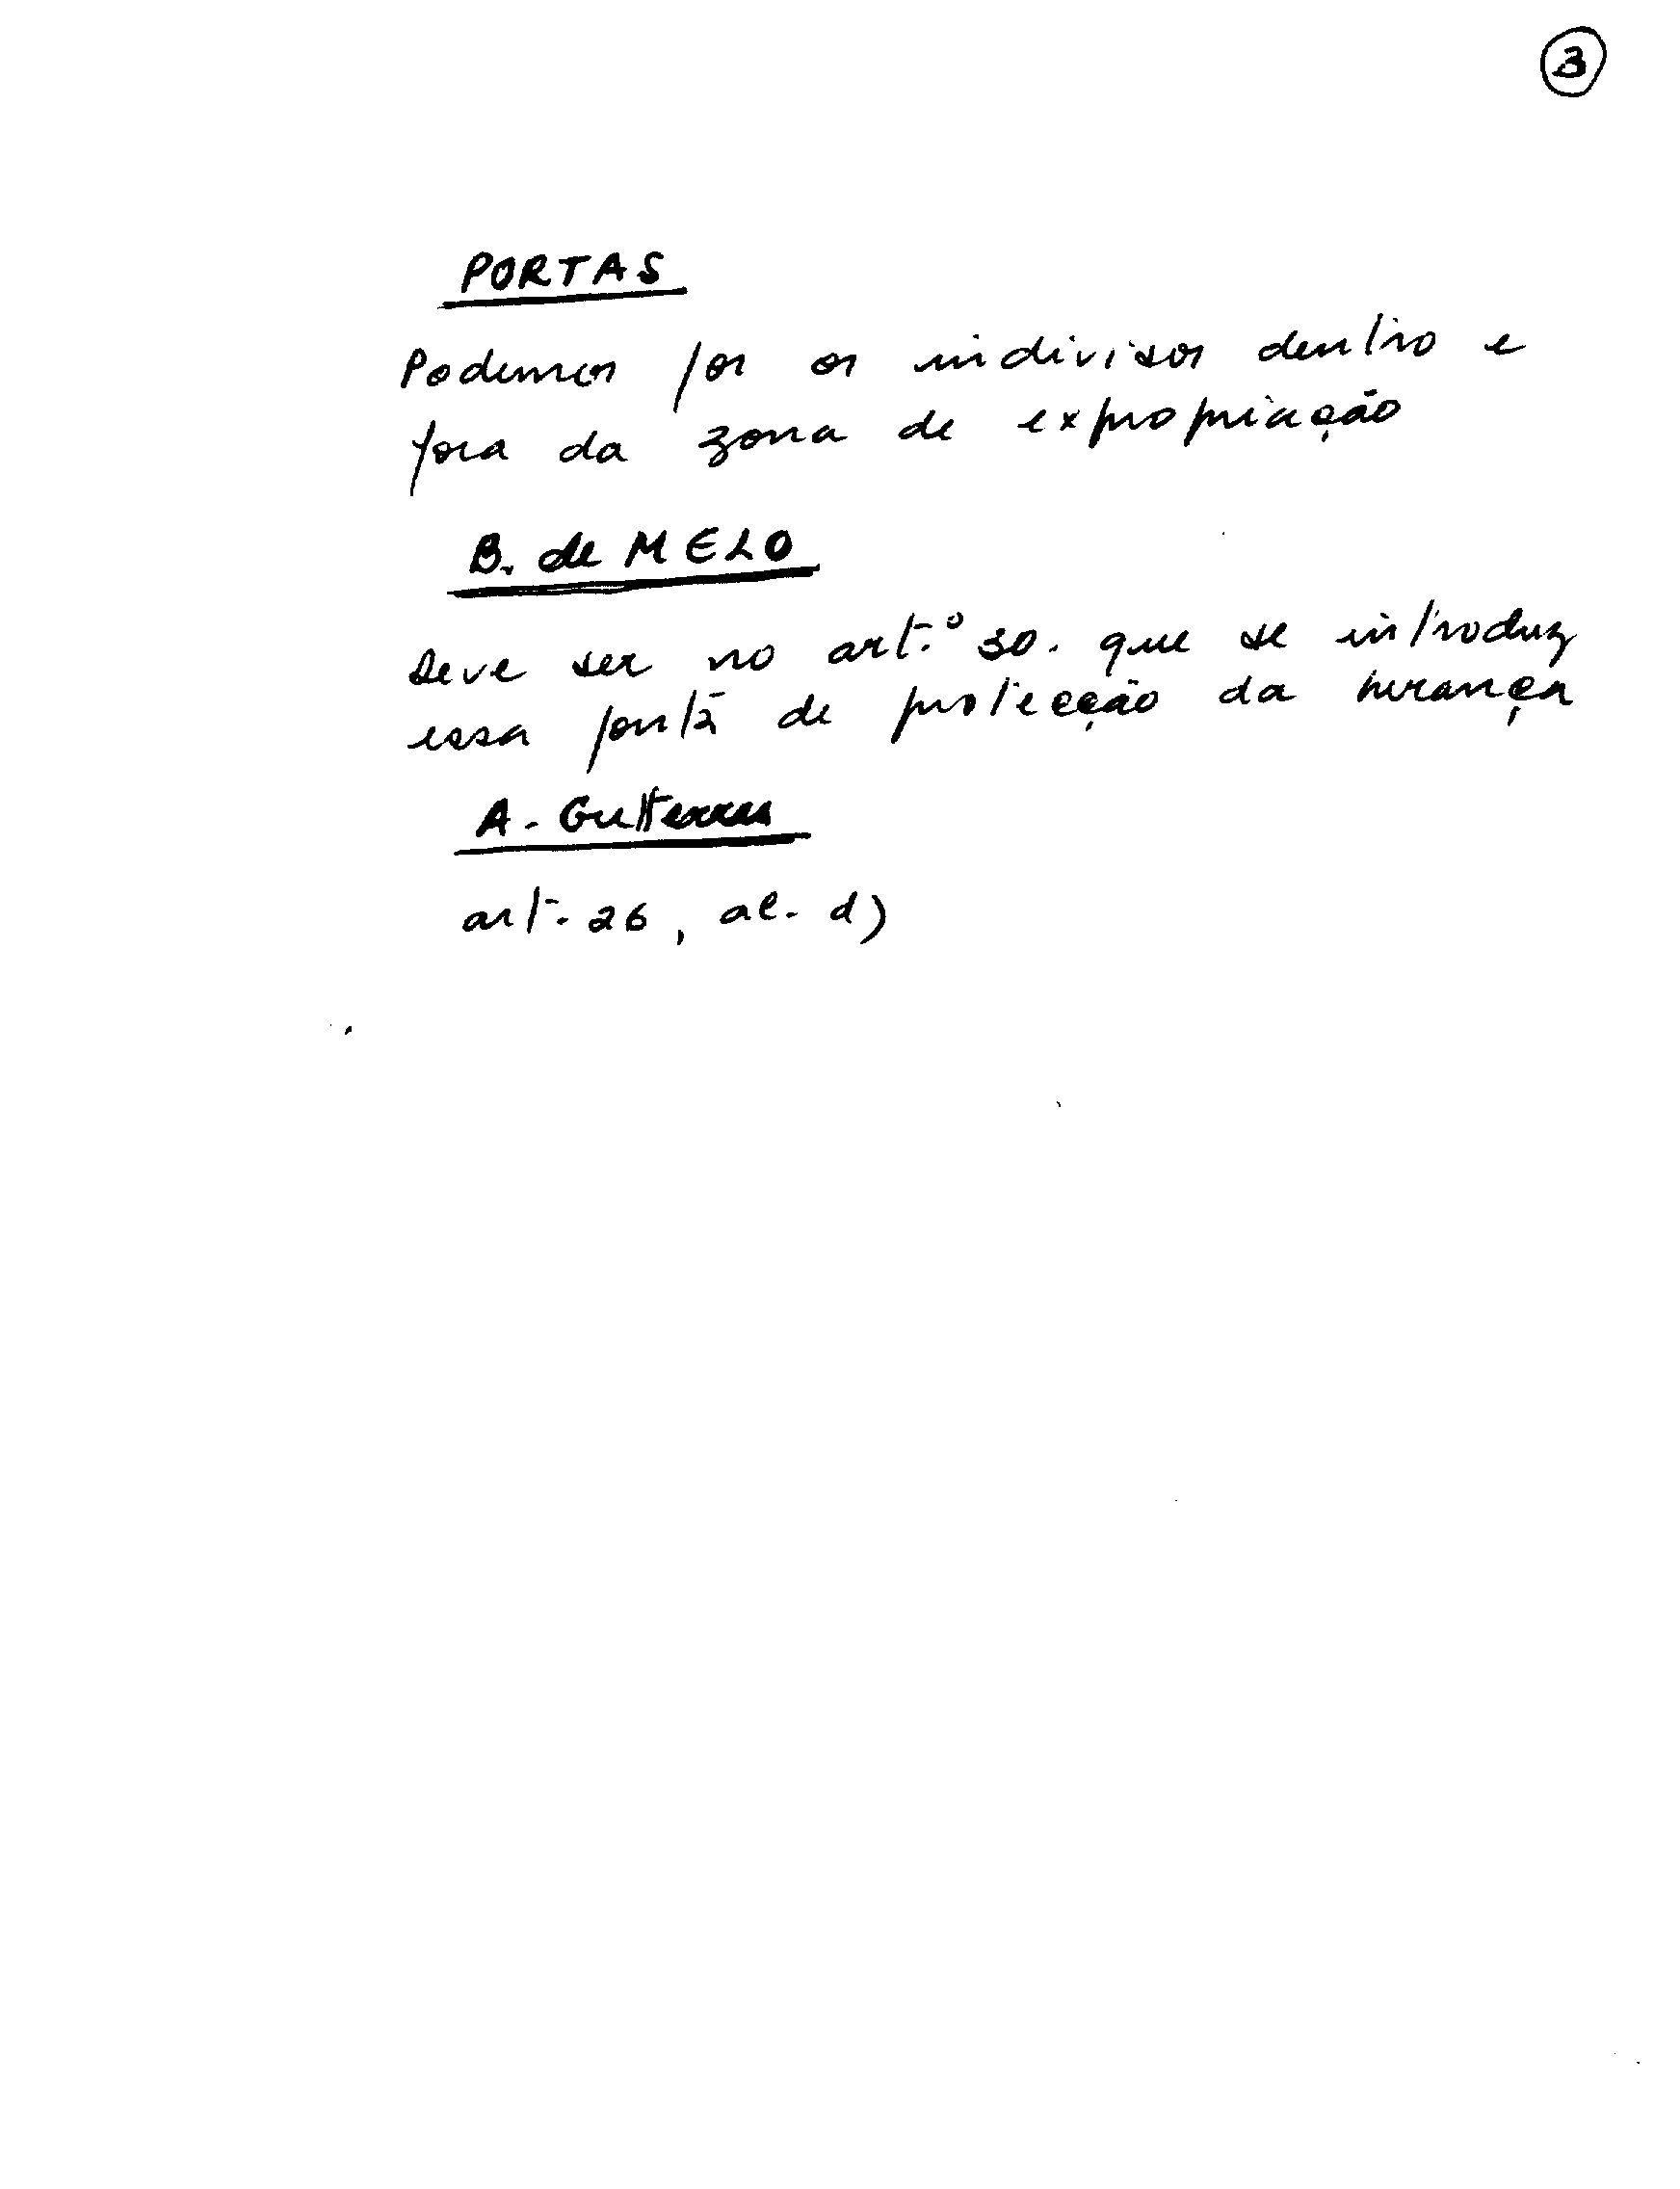 3
PORTAS
Podemos pôr os indivisos dentro e
fora da zona de expropriação
B. de MELO
Deve ser no art.º 30. que se introduz
essa de protecção da herança
A. Gutterres
art. 26, al. d)